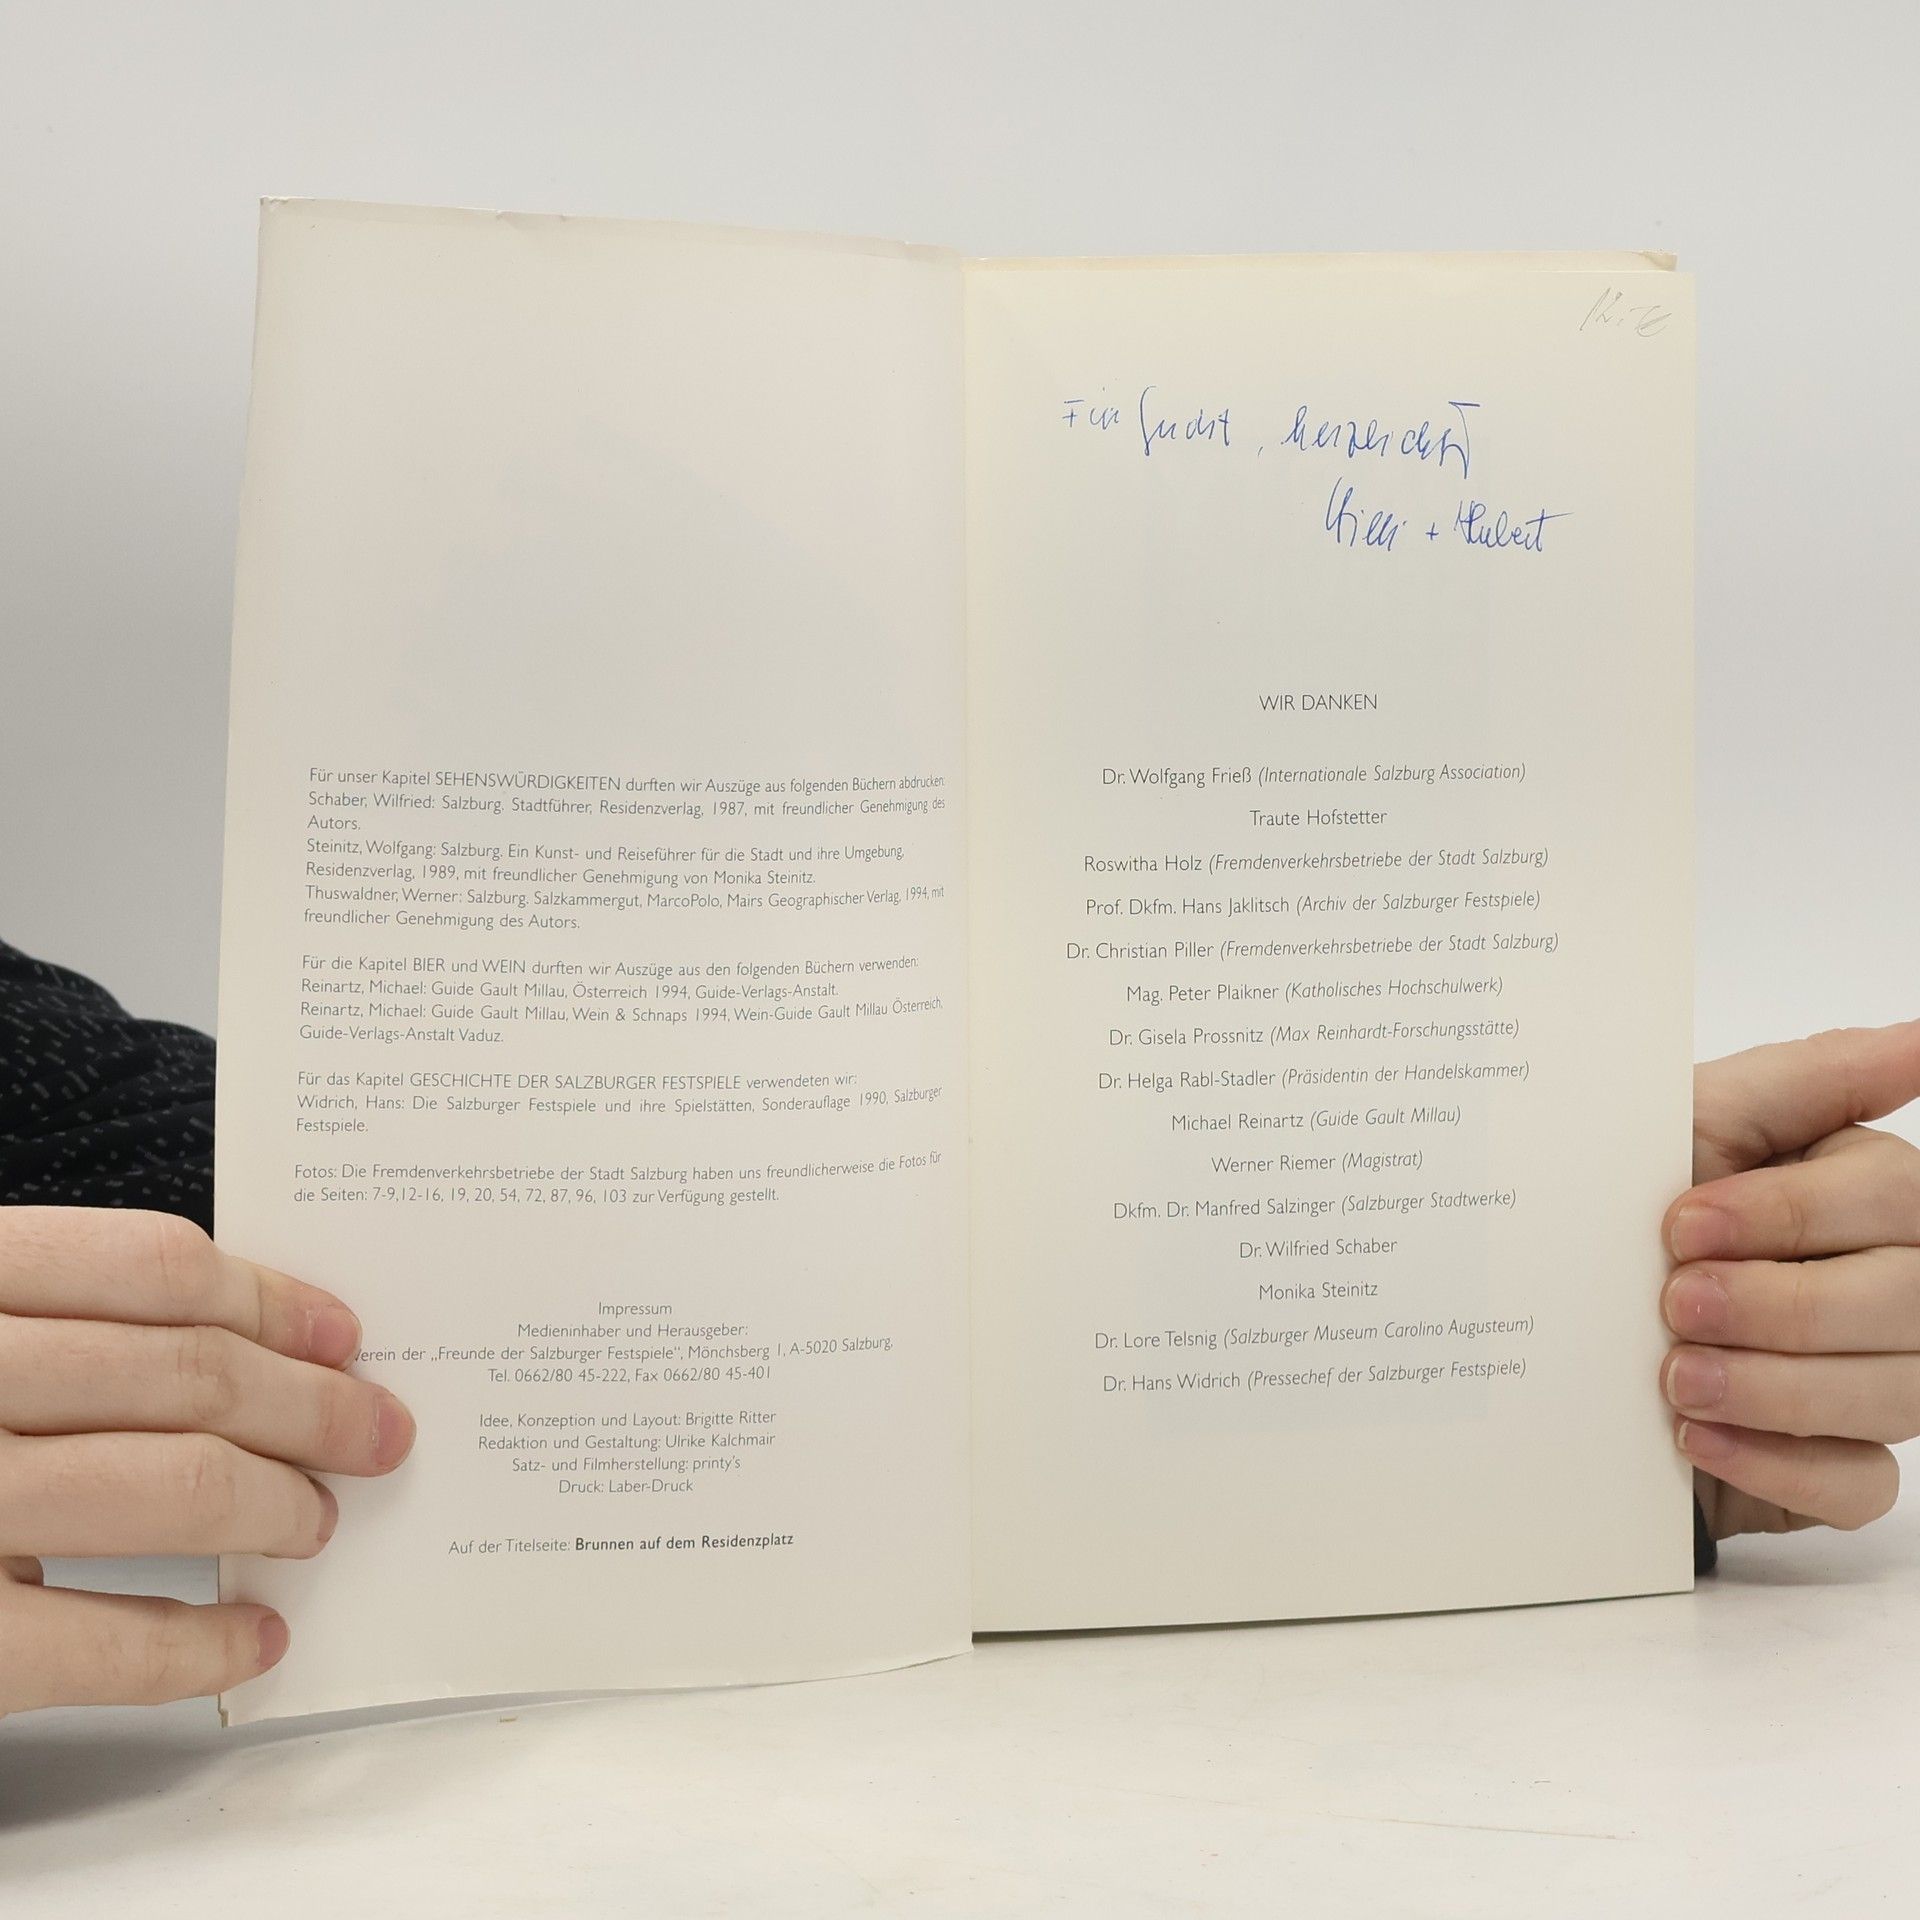 Für unser Kapitel SEHENSWÜRDIGKEITEN durften wir Auszüge aus folgenden Büchern abdrucken:
Schaber, Wilfried: Salzburg, Stadtführer, Residenzverlag, 1987, mit freundlicher Genehmigung des
Autors.
Steinitz, Wolfgang: Salzburg. Ein Kunst- und Reiseführer für die Stadt und ihre Umgebung,
Residenzverlag, 1989, mit freundlicher Genehmigung von Monika Steinitz.
Thuswaldner, Werner: Salzburg. Salzkammergut, MarcoPolo, Mairs Geographischer Verlag, 1994, mit
freundlicher Genehmigung des Autors.
Für die Kapitel BIER und WEIN durften wir Auszüge aus den folgenden Büchern verwenden:
Reinartz, Michael: Guide Gault Millau, Österreich 1994, Guide-Verlags-Anstalt.
Reinartz, Michael: Guide Gault Millau, Wein & Schnaps 1994, Wein-Guide Gault Millau Österreich,
Guide-Verlags-Anstalt Vaduz.
Für das Kapitel GESCHICHTE DER SALZBURGER FESTSPIELE verwendeten wir:
Widrich, Hans: Die Salzburger Festspiele und ihre Spielstätten, Sonderauflage 1990, Salzburger
Festspiele.
Fotos: Die Fremdenverkehrsbetriebe der Stadt Salzburg haben uns freundlicherweise die Fotos für
die Seiten: 7-9,12-16, 19, 20, 54, 72, 87, 96, 103 zur Verfügung gestellt.
Impressum
Medieninhaber und Herausgeber:
Verein der „Freunde der Salzburger Festspiele“, Mönchsberg 1, A-5020 Salzburg,
Tel. 0662/80 45-222, Fax 0662/80 45-401
Idee, Konzeption und Layout: Brigitte Ritter
Redaktion und Gestaltung: Ulrike Kalchmair
Satz- und Filmherstellung: printy's
Druck: Laber-Druck
Auf der Titelseite: Brunnen auf dem Residenzplatz
12.-€
Für , herzlichst
+ Hubert
WIR DANKEN
Dr. Wolfgang Frieß (Internationale Salzburg Association)
Traute Hofstetter
Roswitha Holz (Fremdenverkehrsbetriebe der Stadt Salzburg)
Prof. Dkfm. Hans Jaklitsch (Archiv der Salzburger Festspiele)
Dr. Christian Piller (Fremdenverkehrsbetriebe der Stadt Salzburg)
Mag. Peter Plaikner (Katholisches Hochschulwerk)
Dr. Gisela Prossnitz (Max Reinhardt-Forschungsstätte)
Dr. Helga Rabl-Stadler (Präsidentin der Handelskammer)
Michael Reinartz (Guide Gault Millau)
Werner Riemer (Magistrat)
Dkfm. Dr. Manfred Salzinger (Salzburger Stadtwerke)
Dr. Wilfried Schaber
Monika Steinitz
Dr. Lore Telsnig (Salzburger Museum Carolino Augusteum)
Dr. Hans Widrich (Pressechef der Salzburger Festspiele)